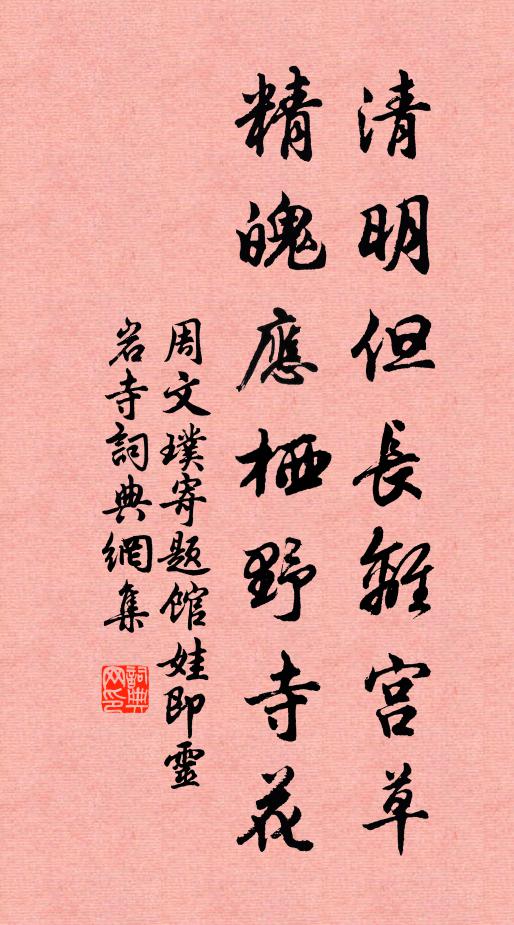 清明但長離宮草
精魄應栖野寺花
周文璞寄題館娃即靈
岩寺詞典網集
詞典网印